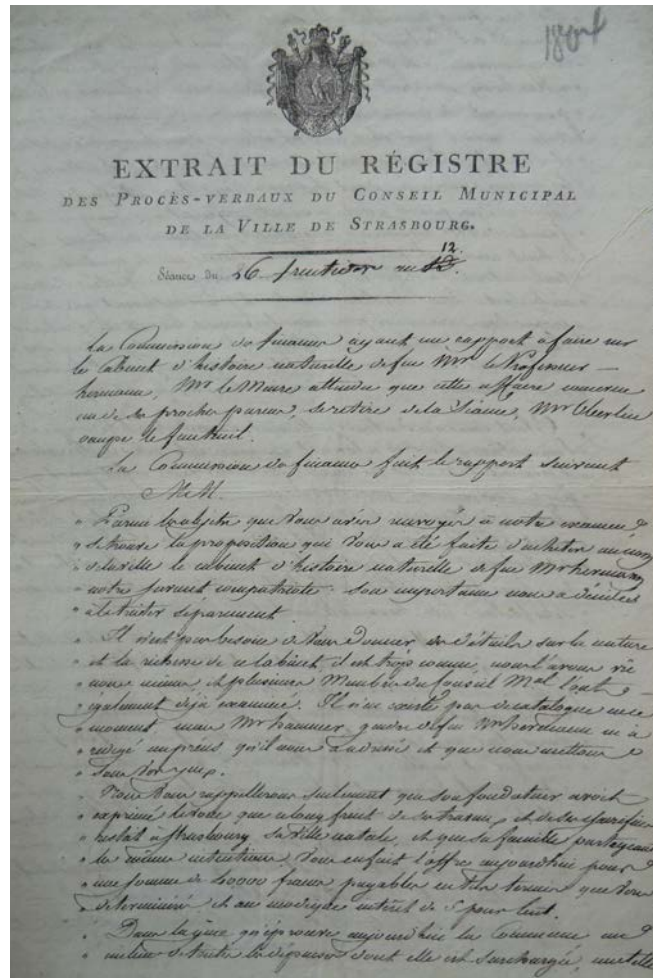 1804
EXTRAIT DU RÉGISTRE
DES PROCÈS-VERBAUX DU CONSEIL MUNICIPAL
DE LA VILLE DE STRASBOURG.
12.
Séance du 26 fructidor an 13.
La Commission de finance ayant un rapport à faire sur
le Cabinet d'histoire naturelle de feu Mr le Professeur
hermann, Mr le Maire attendu que cette affaire concerne
un de ses proches parens, se retire de la Séance, Mr
occupe le fauteuil.
La Commission de finance fait le rapport suivant
M.M.
" Parmi les objets que Vous avés renvoyés à notre examen
" se trouve la proposition qui Vous a été faite d'acheter au nom
" de la ville le cabinet d'histoire naturelle de feu Mr hermann
" notre savant compatriote. son importance nous a décidés
" à le traiter séparément.
" Il n'est pas besoin de Vous donner des détails sur la nature
" et la richesse de ce Cabinet il est trop connu, nous l'avons vu
" nous mêmes, et plusieurs Membres du Conseil Mal l'ont
" également déjà examiné. Il n'en existe pas de catalogue en ce
" moment mais Mr hammer, gendre de feu Mr hermann en a
" rédigé un précis qu'il nous a adressé et que nous mettons
" sous Vos yeux.
" Nous Vous rappellerons seulement que son fondateur avoit
" exprimé le vœu que ce long fruit de ses travaux et de ses sacrifices
" restât à Strasbourg sa ville natale, et que sa famille partageant
" les mêmes intentions Vous en fait l'offre aujourd'hui pour
" une somme de 40000 francs payables en tels termes que Vous
" déterminerés et au modique intérêt de 5 pour Cent.
" Dans la gêne qu'éprouve aujourd'hui la Commune au
" milieu de toutes les dépenses dont elle est surchargée